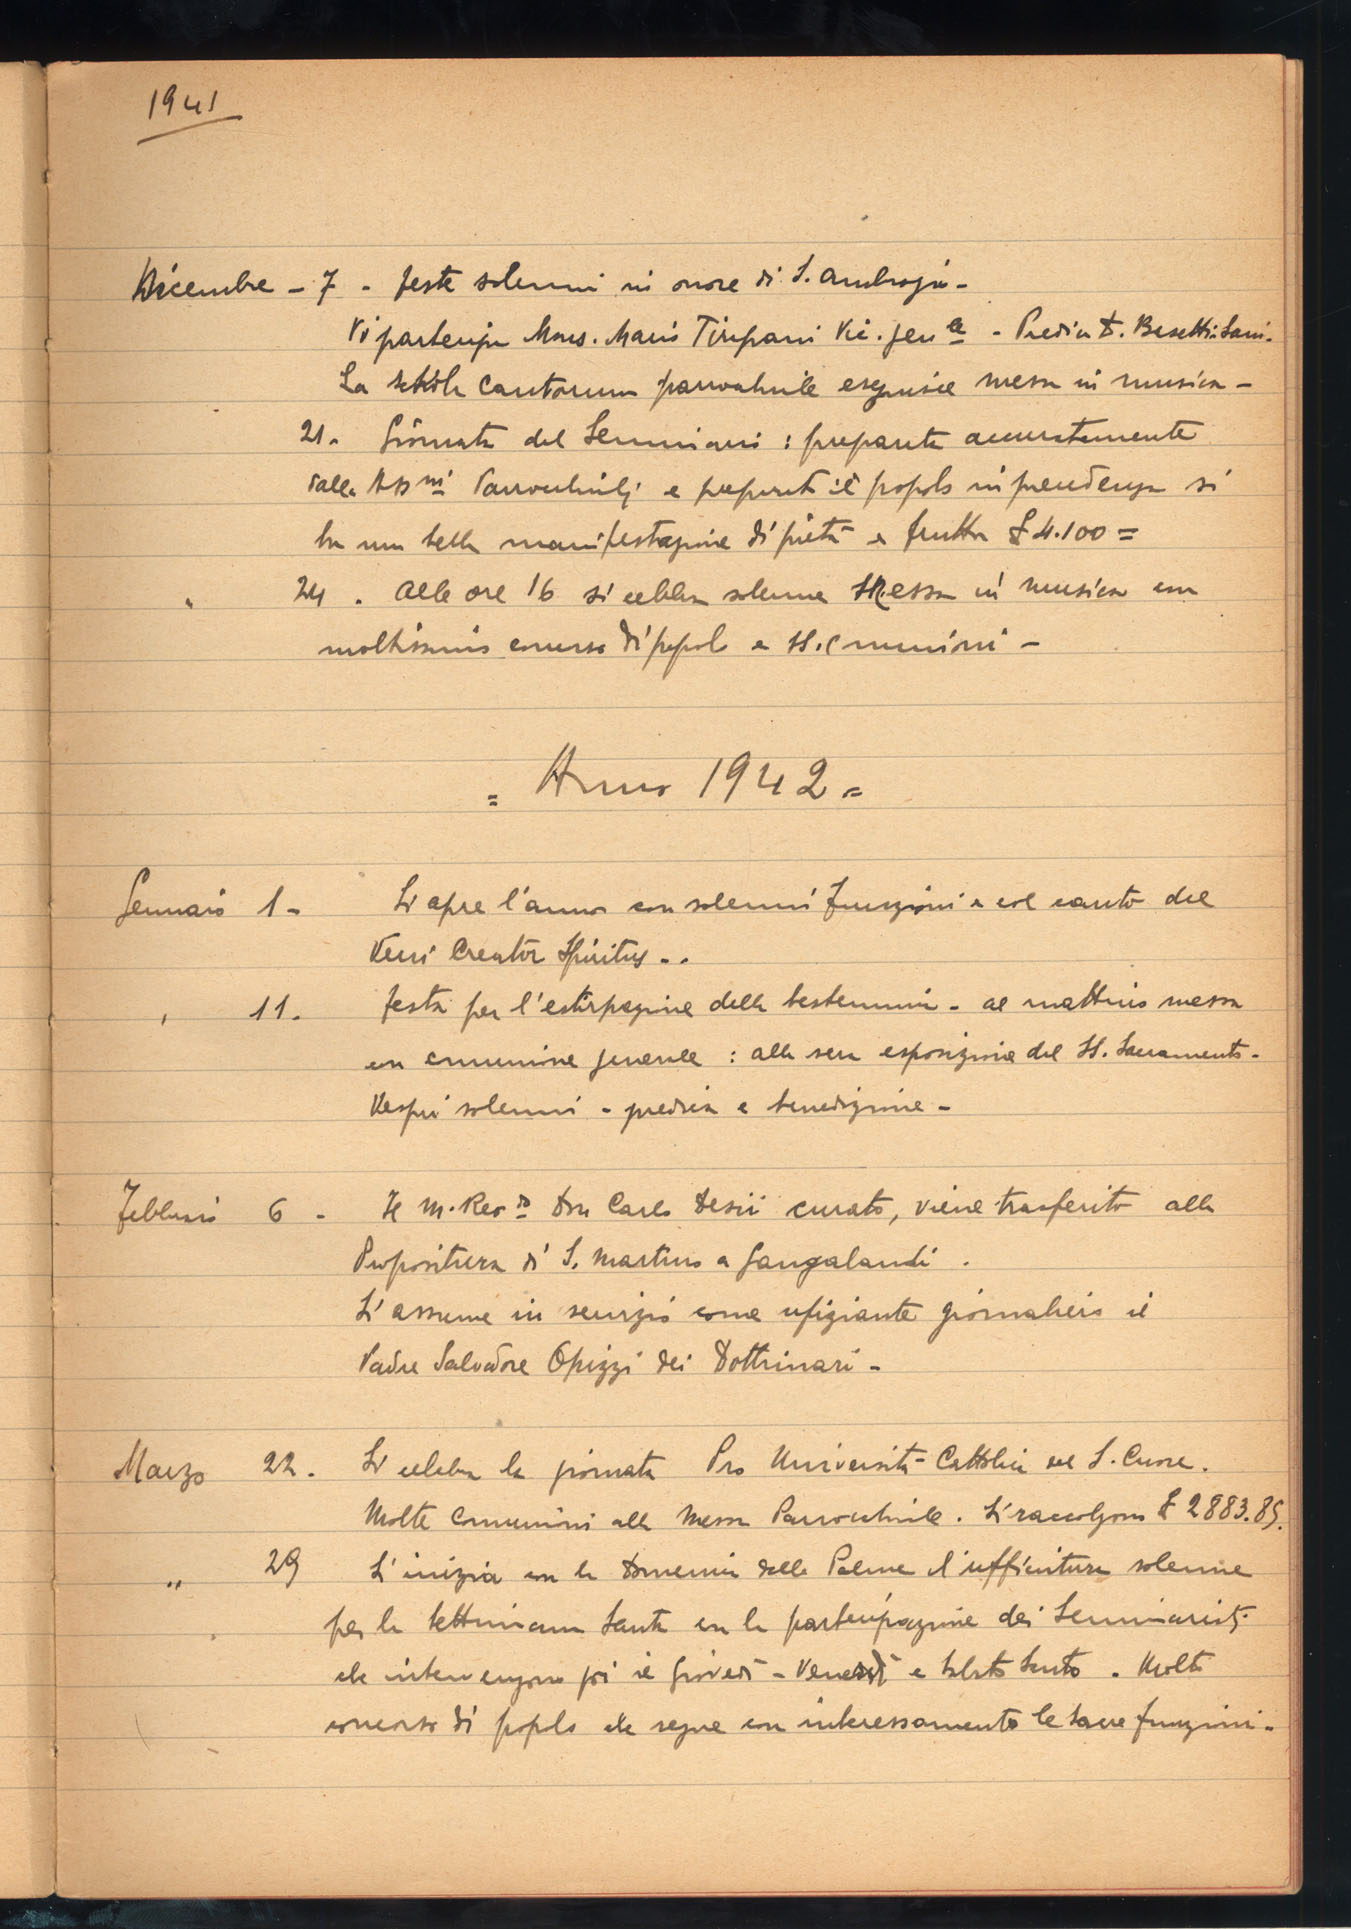 1941
Dicembre - 7 - feste solenni in onore di S. Ambrogio -
Vi partecipa Mons. Mario Tirapani Vic. gen le - Predica D. Besetti Sani.
La schola cantorum parrocchiale eseguisce messa in musica -
21. Giornata del Seminario : preparata accuratamente
dalle Assni Parrocchiali e preparato il popolo in precedenza si
ha una bella manifestazione di pietà e frutta £ 4.100 =
" 24 . Alle ore 16 si celebra solenne Messa in musica con
moltissimo concorso di popolo e SS. Comunioni -
= Anno 1942 =
Gennaio 1 - Si apre l'anno con solenni funzioni e col canto del
Veni Creator Spiritus - .
" 11. festa per l'estirpazione della bestemmia - al mattino messa
con comunione generale : alla sera esposizione del SS. Sacramento -
Vespri solenni - predica e benedizione -
Febbraio 6 - Il M. Rev do Don Carlo Desii curato, viene trasferito alla
Propositura di S. Martino a Gangalandi .
Si assume in servizio come ufiziante giornaliero il
Padre Salvadore Opizzi dei Dottrinari -
Marzo 22. Si celebra la giornata Pro Università Cattolica del S. Cuore.
Molte Comunioni alla Messa Parrocchiale. Si raccolgono £ 2883.85.
" 29 Si inizia con la Domenica delle Palme l'ufficiatura solenne
per la Settimana Santa con la partecipazione dei Seminaristi
che intervengono poi il Giovedì - Venerdì e Sabato Santo . Molto
concorso di popolo che segue con interessamento le sacre funzioni -